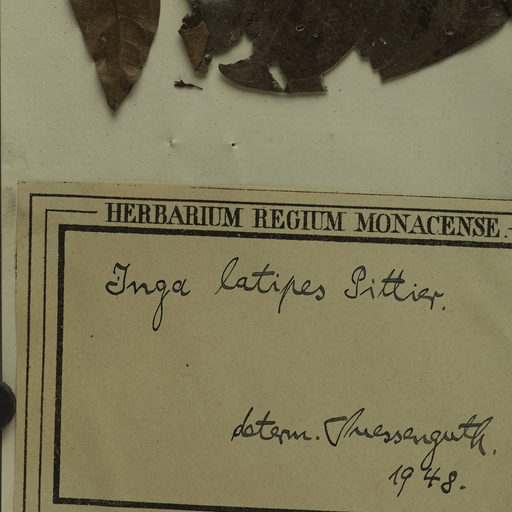 HERBARIUM REGIUM MONACENSE.
Inga latipes Pittier.
determ. Suessenguth.
1948.